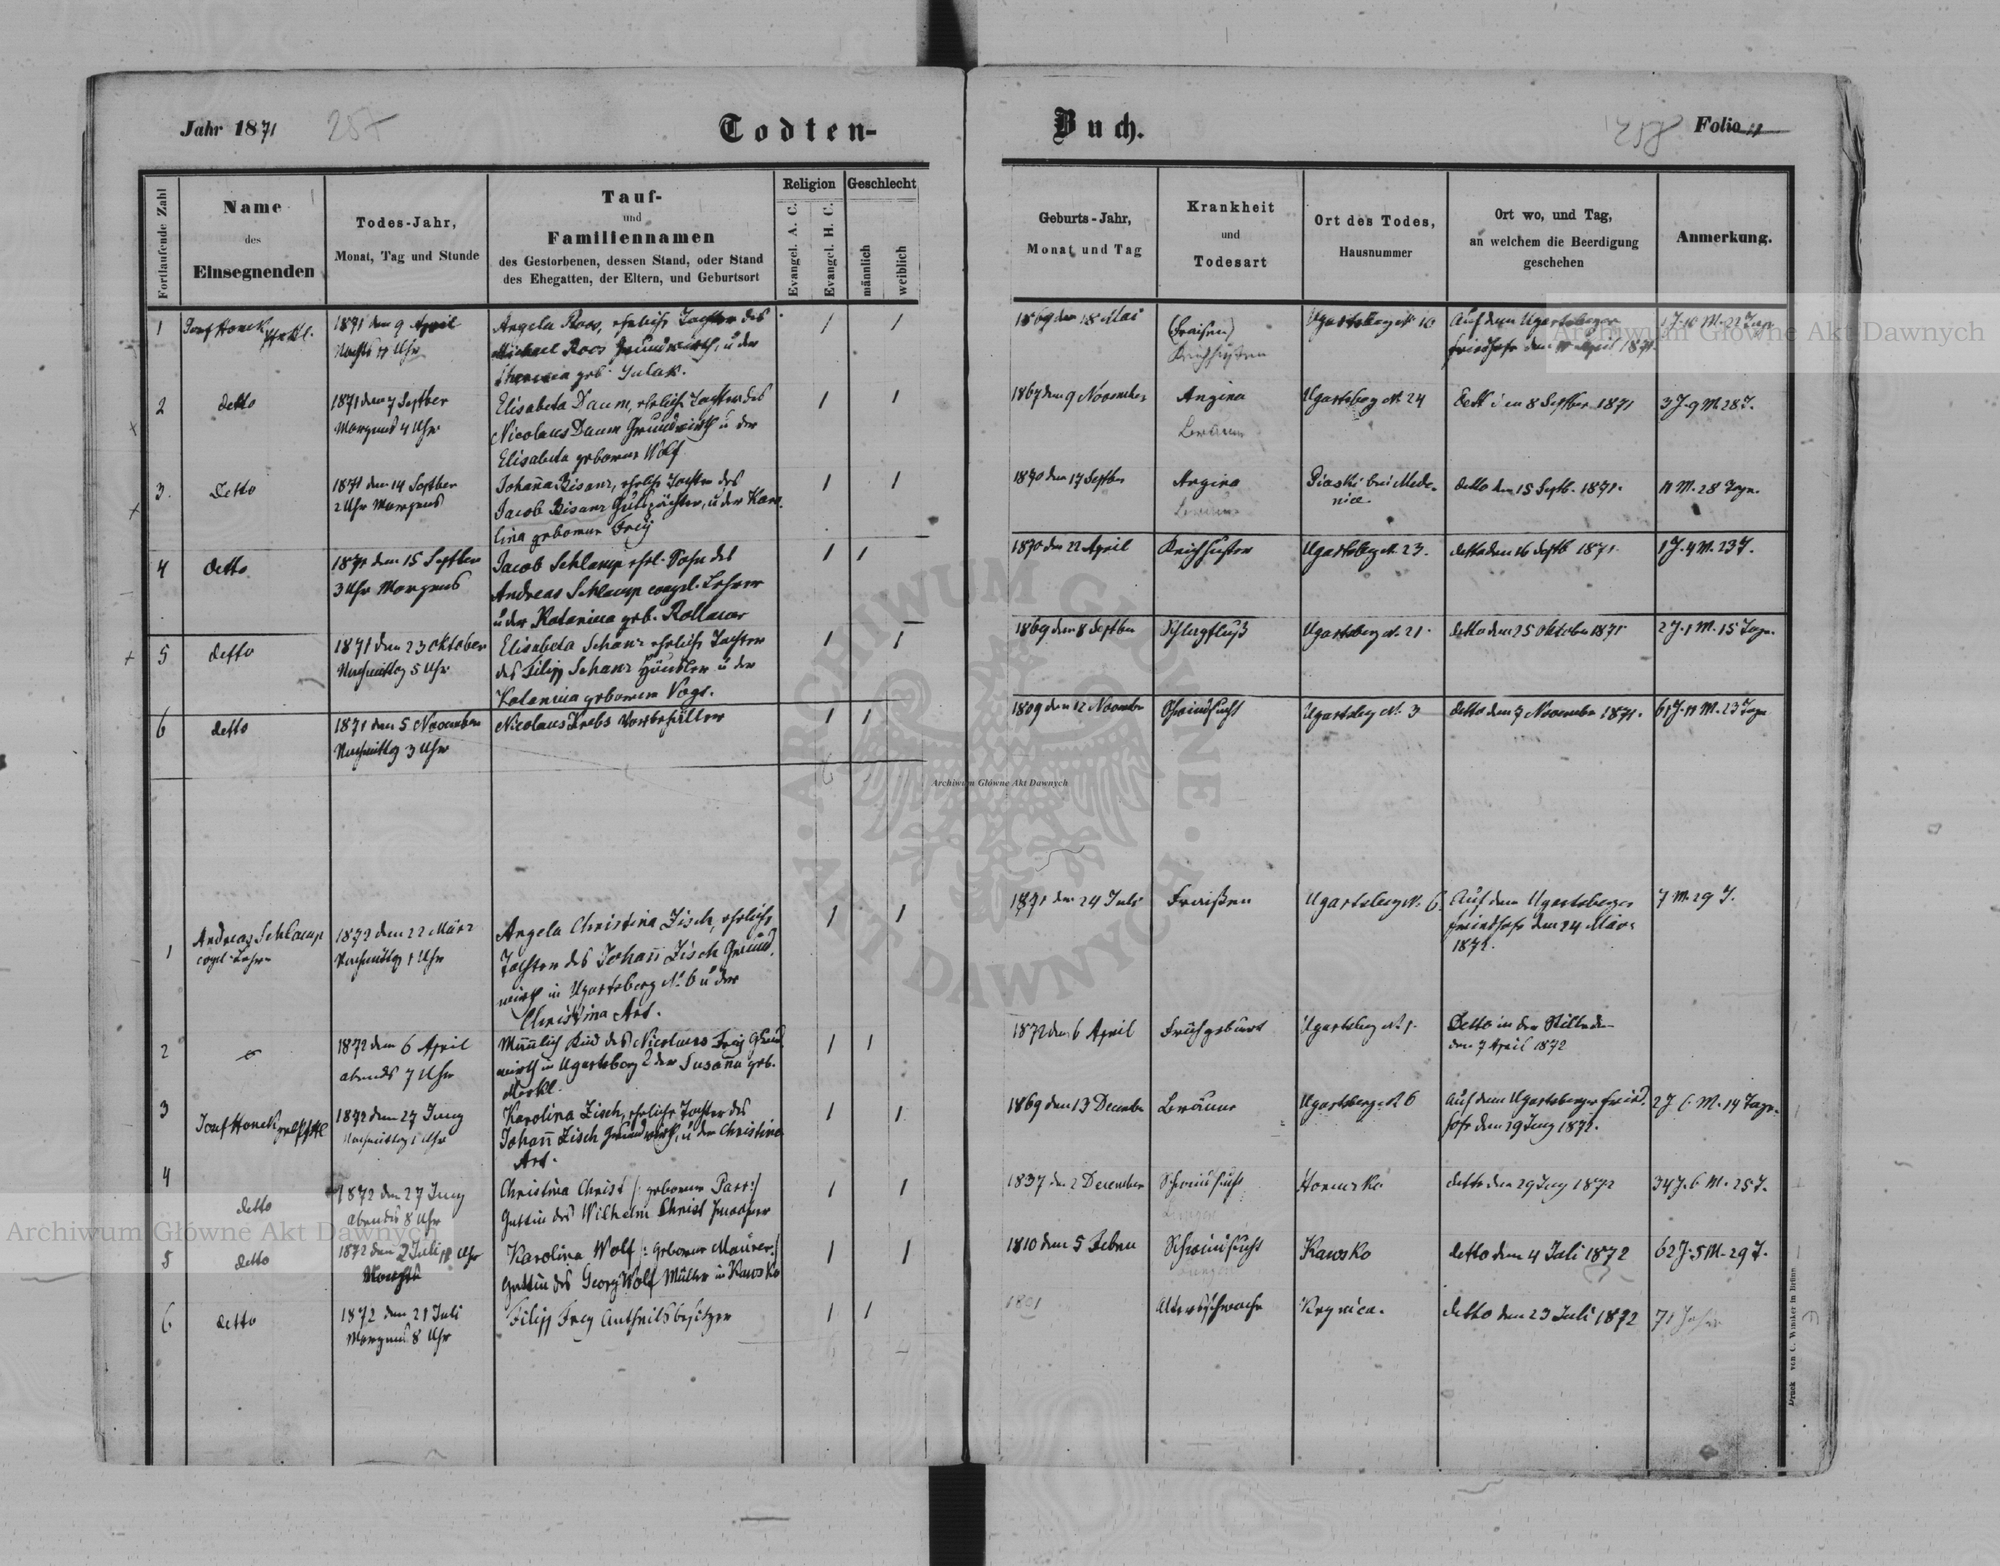 Jahr 1871
257
Todten-
Fortlaufende Zahl
Name
des
Einsegnenden
Todes-Jahr,
Monat, Tag und Stunde
Tauf-
und
Familiennamen
des Gestorbenen, dessen Stand, oder Stand
des Ehegatten, der Eltern, und Geburtsort
Religion
Evangel. A. C.
Evangel. H. C.
Geschlecht
männlich
weiblich
Buch.
258
Folio 11
Geburts-Jahr,
Monat und Tag
Krankheit
und
Todesart
Ort des Todes,
Hausnummer
Ort wo, und Tag,
an welchem die Beerdigung
geschehen
Anmerkung.
1
Josef Honek
1871 den 9 April
Nachts 11 Uhr
Angela Roos, ehrliche Tochter des
Michael Roos Grundwirth, u der
geb.
1869 den 18 Mai
(Fraisen)
Keichhusten
Ugartsberg N. 10
Auf dem Ugartsberger
Friedhofe den 11 April 1871.
1 J. 10 M. 22 Tage
2
detto
1871 den 7 Septber
Morgens 4 Uhr
Elisabeta Daum, ehrliche Tochter des
Nicolaus Daum Grundwirth u der
Elisabeta geborene Wolf
1867 den 9 November
Angina
Bräune
Ugartsberg N. 24
8 Septber 1871
3 J. 9 M. 28 T.
3.
Detto
1871 den 14 Septber
2 Uhr Morgens
Johanna Bisanz, ehrliche Tochter des
Jacob Bisanz Gutspächter, u der Karo
lina geborene Frey
1870 den 17 Septbr
Angina
Bräune
Piaski bei Mede-
nice.
detto den 15 Septb. 1871.
11 M. 28 Tage.
4
detto
1871 den 15 Septber
3 Uhr Morgens
Jacob Schlamp ehrl. Sohn des
Andreas Schlamp evangl. Lehrer
u der Katarina geb. Rollauer
1870 den 22 April
Keichhusten
Ugartsberg N. 23.
detto den 16 Septb 1871.
1 J. 4 M. 23 T.
5
detto
1871 den 23 Oktober
Nachmittag 5 Uhr
Elisabeta Schanz ehrliche Tochter
des Filipp Schanz Häusler u der
Katarina geborene Vogt.
1869 den 8 Septber
Schlagfluß
Ugartsberg N. 21.
detto den 25 Oktober 1871
2 J. 1 M. 15 Tage.
6
detto
1871 den 5 November
Nachmittag 3 Uhr
Nicolaus Krebs Vorbehälter
1809 den 12 November
Schwindsucht
Ugartsberg N. 3
detto den 7 November 1871.
61 J. 11 M. 23 Tage
1
Andreas Schlamp
evgl. Lehrer
1872 den 22 März
Nachmittag 1 Uhr
Angela Christina Zisch, ehrliche
Tochter des Johann Zisch Grund-
wirth in Ugartsberg N. 6 u der
Christina Art.
1871 den 24 Juli
Fraißen
Ugartsberg N. 6
Auf dem Ugartsberger
Friedhofe den 24 März
1872.
7 M. 29 T.
2
1872 den 6 April
abends 7 Uhr
Männlich Kind des Nicolaus Frey Grund
wirth in Ugartsberg der Susana geb.
Merkl.
1872 den 6 April
Frühgeburt
Ugartsberg N. 1.
Detto in der Stille den
den 7 April 1872
3
Josef Honek
1872 den 27 Juny
Nachmittag 1 Uhr
Karolina Zisch, ehrliche Tochter des
Johann Zisch Grundwirth, u der Christina
Art.
1869 den 13 December
Bräune
Ugartsberg N. 6
Auf dem Ugartsberger Fried-
hofe den 29 Juny 1872.
2 J. 6 M. 14 Tage.
4
detto
1872 den 27 Juny
abends 8 Uhr
Christina Christ /: geborene Parr :/
Gattin des Wilhelm Christ
1837 den 2 December
Schwindsucht
Horucko
detto den 29 Juny 1872
34 J. 6 M. 25 T.
5
detto
1872 den 2 Juli 11 Uhr
Nachts
Karolina Wolf /: geborene Maurer :/
Gattin des Georg Wolf Müller in Kawsko
1810 den 5 Feber
Schwindsucht
Kawsko
detto den 4 Juli 1872
62 J. 5 M. 29 T.
6
detto
1872 den 21 Juli
Morgens 8 Uhr
Filipp Frey Antheilsbesitzer
1801
Altersschwäche
Krynica.
detto den 23 Juli 1872
71 Jahr
Druck von C. Winiker in Brünn.
Archiwum Główne Akt Dawnych
Archiwum Główne Akt Dawnych
Archiwum Główne Akt Dawnych
ARCHIWUM GŁÓWNE AKT DAWNYCH